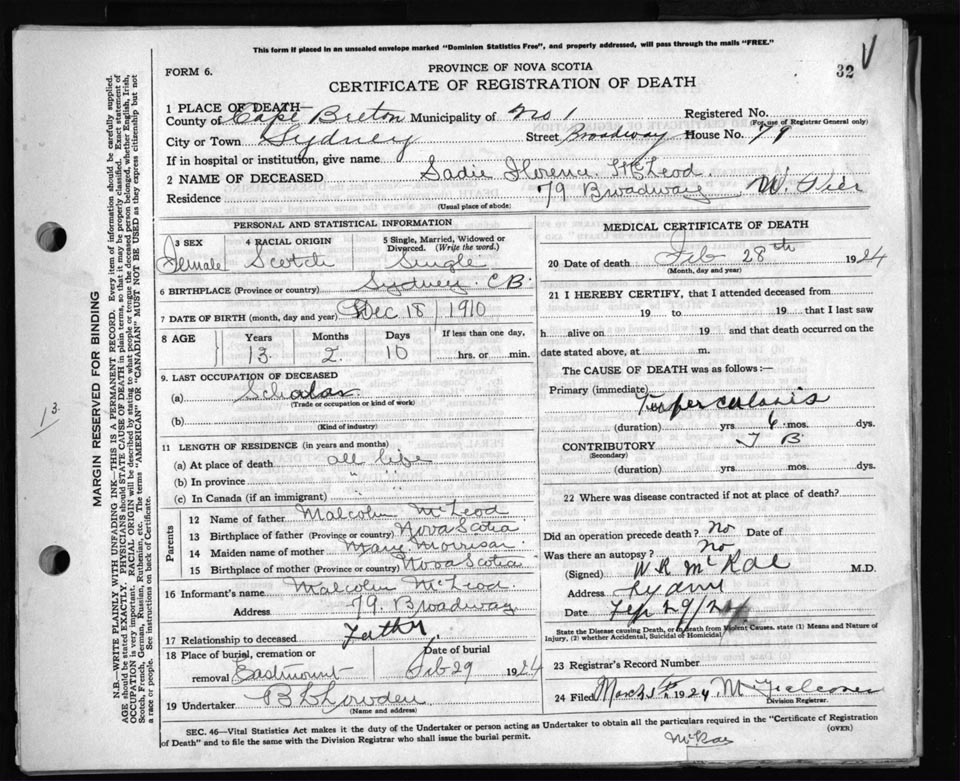 This form if placed in an unsealed envelope marked "Dominion Statistics Free", and properly addressed, will pass through the mails "FREE."
FORM 6.
PROVINCE OF NOVA SCOTIA
32
CERTIFICATE OF REGISTRATION OF DEATH
1 PLACE OF DEATH—
County of Cape Breton Municipality of No 1 Registered No.
(For use of Registrar General only)
City or Town Sydney Street Broadway House No. 79
If in hospital or institution, give name
2 NAME OF DECEASED Sadie Florence McLeod.
Residence 79 Broadway W. Pier
(Usual place of abode)
PERSONAL AND STATISTICAL INFORMATION
3 SEX Female
4 RACIAL ORIGIN Scotch
5 Single, Married, Widowed or Divorced. (Write the word.) Single
6 BIRTHPLACE (Province or country) Sydney C B.
7 DATE OF BIRTH (month, day and year) Dec 18 1910
8 AGE Years 13. Months 2. Days 10 If less than one day, hrs. or min.
9. LAST OCCUPATION OF DECEASED
(a) Scholar
(Trade or occupation or kind of work)
(b)
(Kind of industry)
11 LENGTH OF RESIDENCE (in years and months)
(a) At place of death all life
(b) In province " "
(c) In Canada (if an immigrant) " "
Parents
12 Name of father Malcolm McLeod
13 Birthplace of father (Province or country) Nova Scotia
14 Maiden name of mother Mary Morrison
15 Birthplace of mother (Province or country) Nova Scotia
16 Informant's name Malcolm McLeod.
Address 79. Broadway
17 Relationship to deceased Father
18 Place of burial, cremation or removal Eastmount Date of burial Feb 29 1924
19 Undertaker Lowden
(Name and address)
MEDICAL CERTIFICATE OF DEATH
20 Date of death Feb 28th 1924
(Month, day and year)
21 I HEREBY CERTIFY, that I attended deceased from
19 to 19 that I last saw
h alive on 19 and that death occurred on
date stated above, at m.
The CAUSE OF DEATH was as follows:—
Primary (immediate) Tuberculosis
(duration) yrs. 6 mos. dys.
CONTRIBUTORY T B
(Secondary)
(duration) yrs. mos. dys.
22 Where was disease contracted if not at place of death?
Did an operation precede death? no Date of
Was there an autopsy? no
(Signed) W R McRae M.D.
Address Sydney
Date Feb 29/24
State the Disease causing Death, or in death from Violent Causes, state (1) Means and Nature of
Injury, (2) whether Accidental, Suicidal or Homicidal
23 Registrar's Record Number
24 Filed March 1924
Division Registrar.
SEC. 46—Vital Statistics Act makes it the duty of the Undertaker or person acting as Undertaker to obtain all the particulars required in the "Certificate of Registration
of Death" and to file the same with the Division Registrar who shall issue the burial permit.
(OVER)
McRae
MARGIN RESERVED FOR BINDING
N.B.—WRITE PLAINLY WITH UNFADING INK—THIS IS A PERMANENT RECORD. Every item of information should be carefully supplied.
AGE should be stated EXACTLY. PHYSICIANS should STATE CAUSE OF DEATH in plain terms, so that it may be properly classified. Exact statement of
OCCUPATION is very important. RACIAL ORIGIN will be described by stating to what people or race the deceased person belonged, whether English, Irish,
Scotch, French, German, Russian, Ruthenian, etc. The terms "AMERICAN" OR "CANADIAN" MUST NOT BE USED as they express citizenship but not
a race or people. See instructions on back of Certificate.